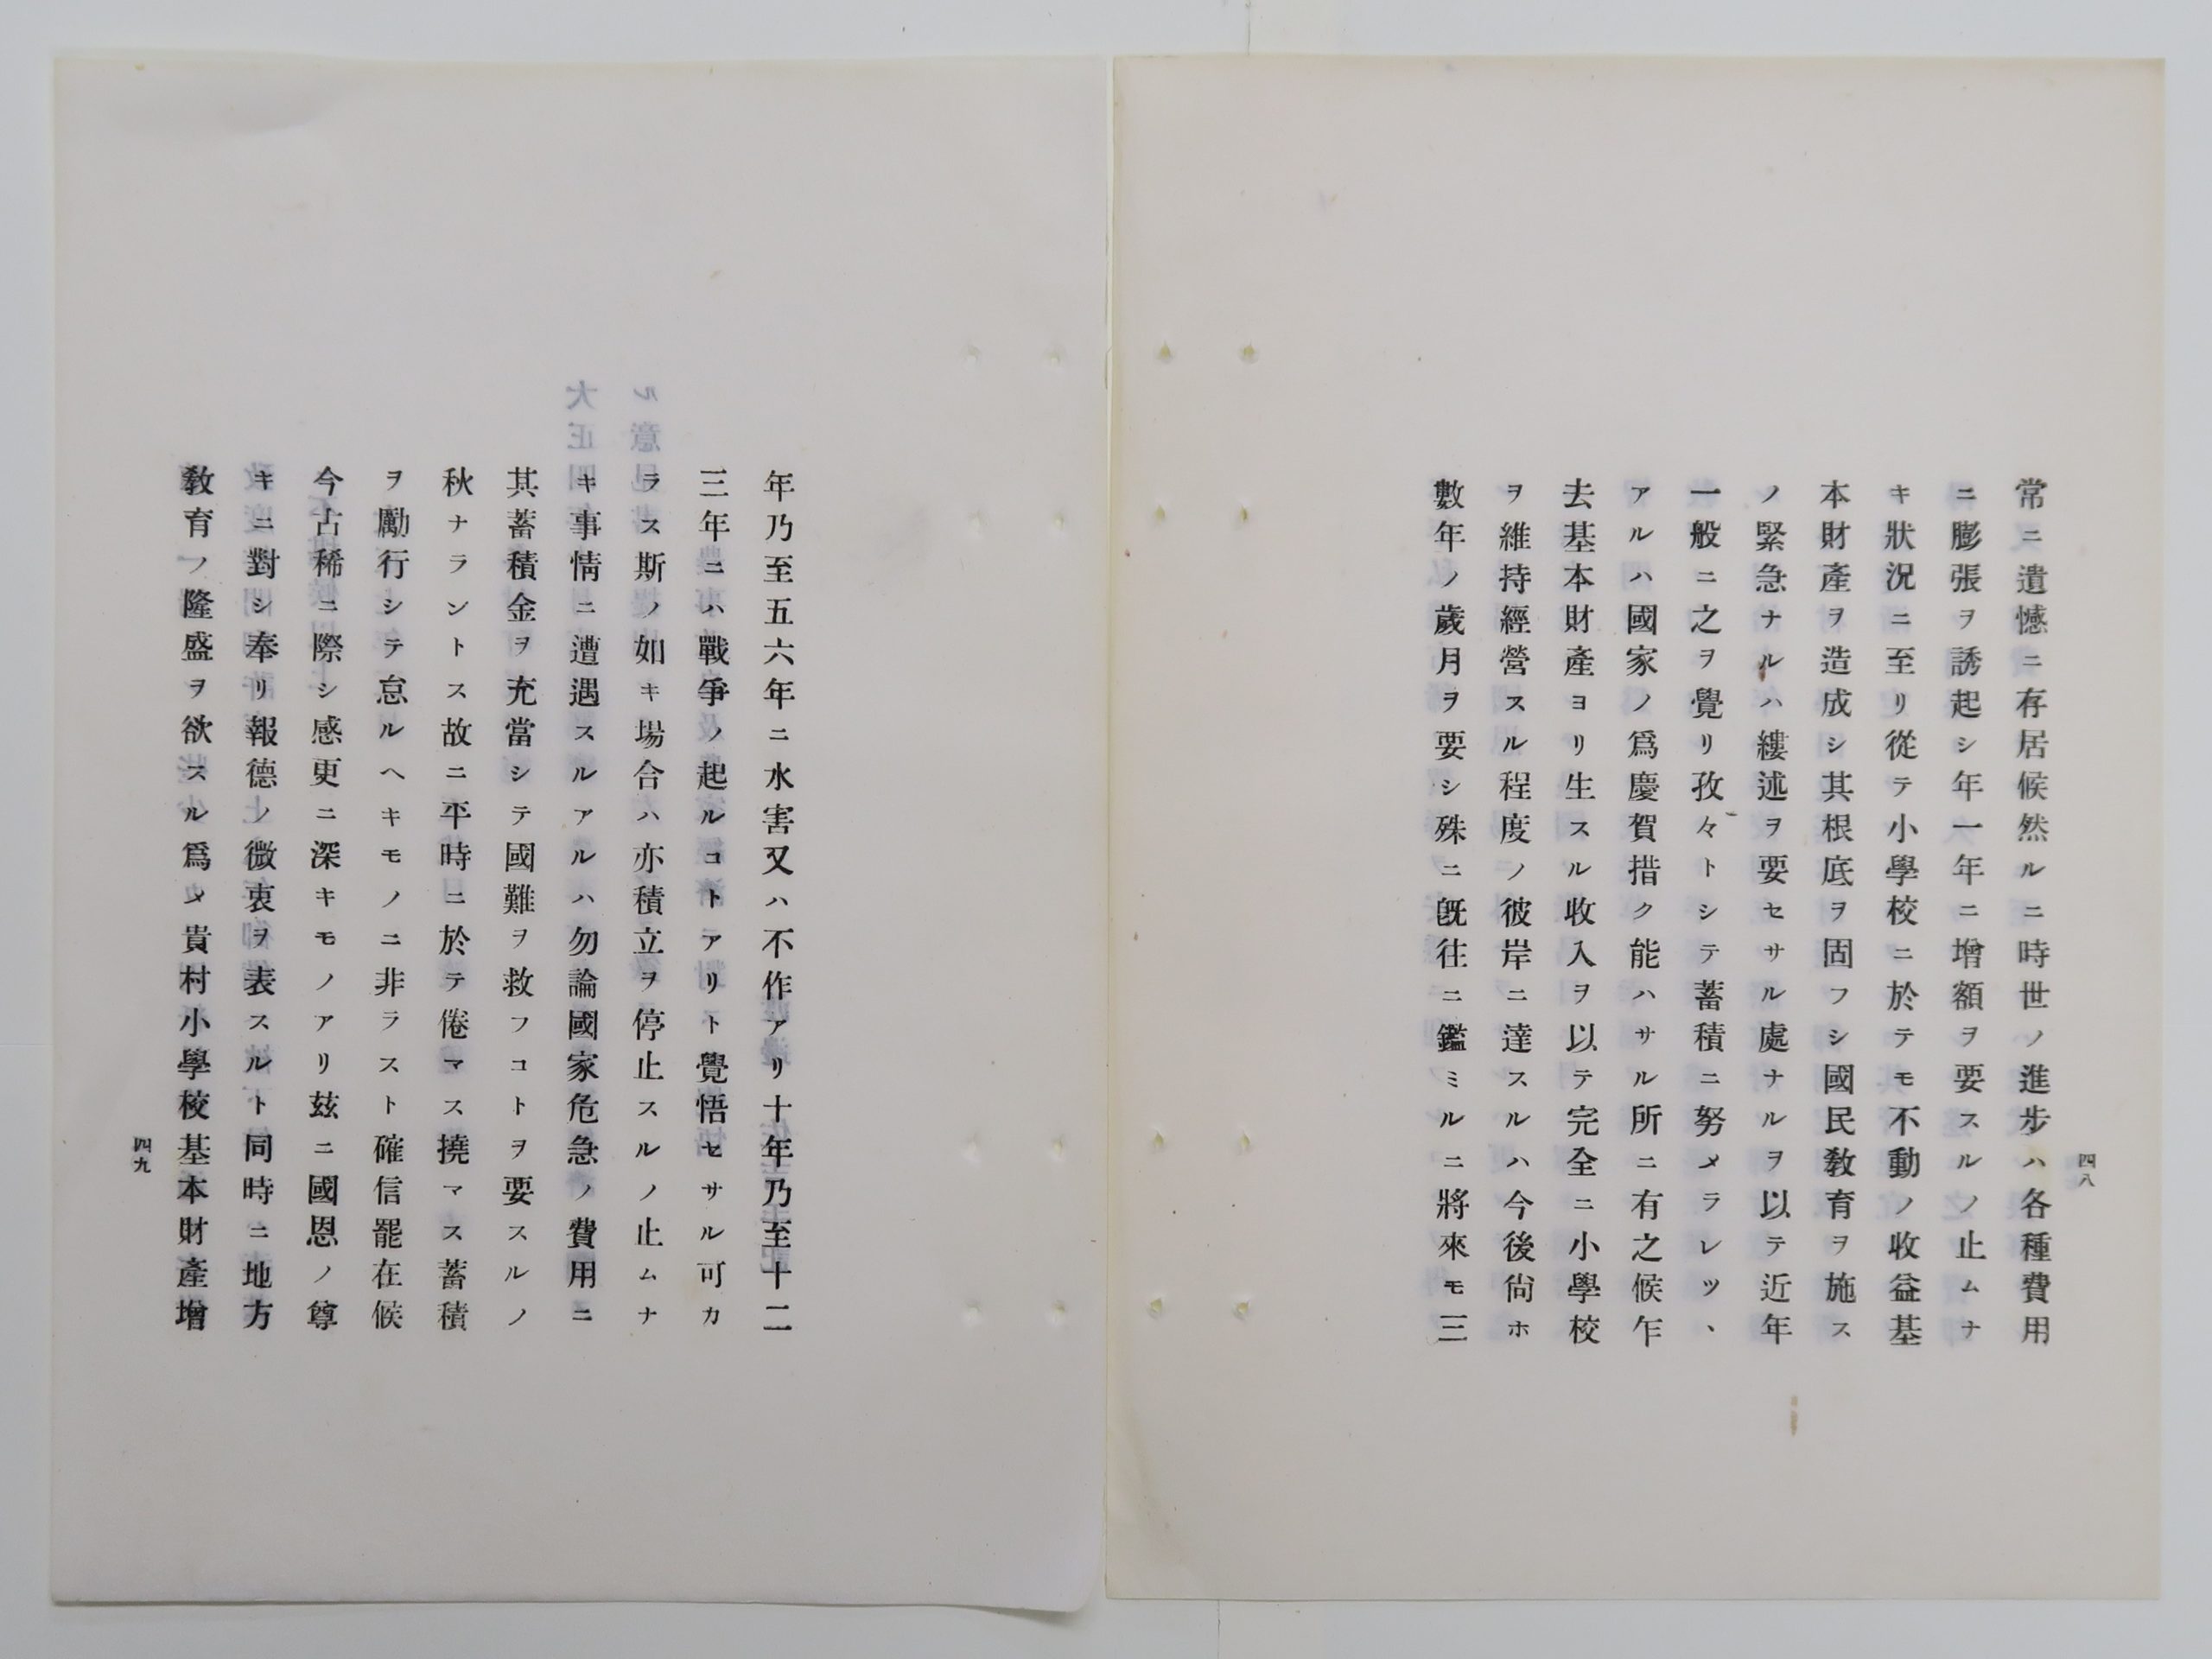 四八
常ニ遺憾ニ存居候然ルニ時世ノ進步ハ各種費用
ニ膨張ヲ誘起シ年一年ニ增額ヲ要スルノ止ムナ
キ狀況ニ至リ從テ小學校ニ於テモ不動ノ收益基
本財產ヲ造成シ其根底ヲ固フシ國民敎育ヲ施ス
ノ緊急ナルハ縷述ヲ要セサル處ナルヲ以テ近年
一般ニ之ヲ覺リ孜々トシテ蓄積ニ努メラレツヽ
アルハ國家ノ爲慶賀措ク能ハサル所ニ有之候乍
去基本財產ヨリ生スル收入ヲ以テ完全ニ小學校
ヲ維持經營スル程度ノ彼岸ニ達スルハ今後尙ホ
數年ノ歲月ヲ要シ殊ニ旣往ニ鑑ミルニ將來モ三
年乃至五六年ニ水害又ハ不作アリ十年乃至十二
三年ニハ戰爭ノ起ルコトアリト覺悟セサル可カ
ラス斯ノ如キ場合ハ亦積立ヲ停止スルノ止ムナ
キ事情ニ遭遇スルアルハ勿論國家危急ノ費用ニ
其蓄積金ヲ充當シテ國難ヲ救フコトヲ要スルノ
秋ナラントス故ニ平時ニ於テ倦マス撓マス蓄積
ヲ勵行シテ怠ルヘキモノニ非ラスト確信罷在候
今古稀ニ際シ感更ニ深キモノアリ玆ニ國恩ノ尊
キニ對シ奉リ報德ノ微衷ヲ表スルト同時ニ地方
敎育ノ隆盛ヲ欲スル爲メ貴村小學校基本財產增
四九